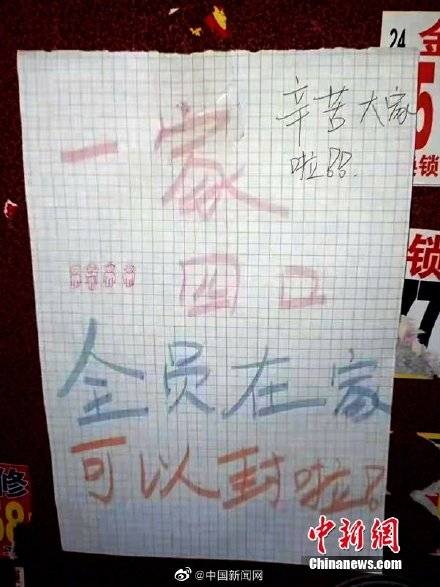 辛苦大家
啦
一家
四口
全员在家
可以封啦
24
金
5
锁
锁
7
修
58
中新网
Chinanews.com
@中国新闻网